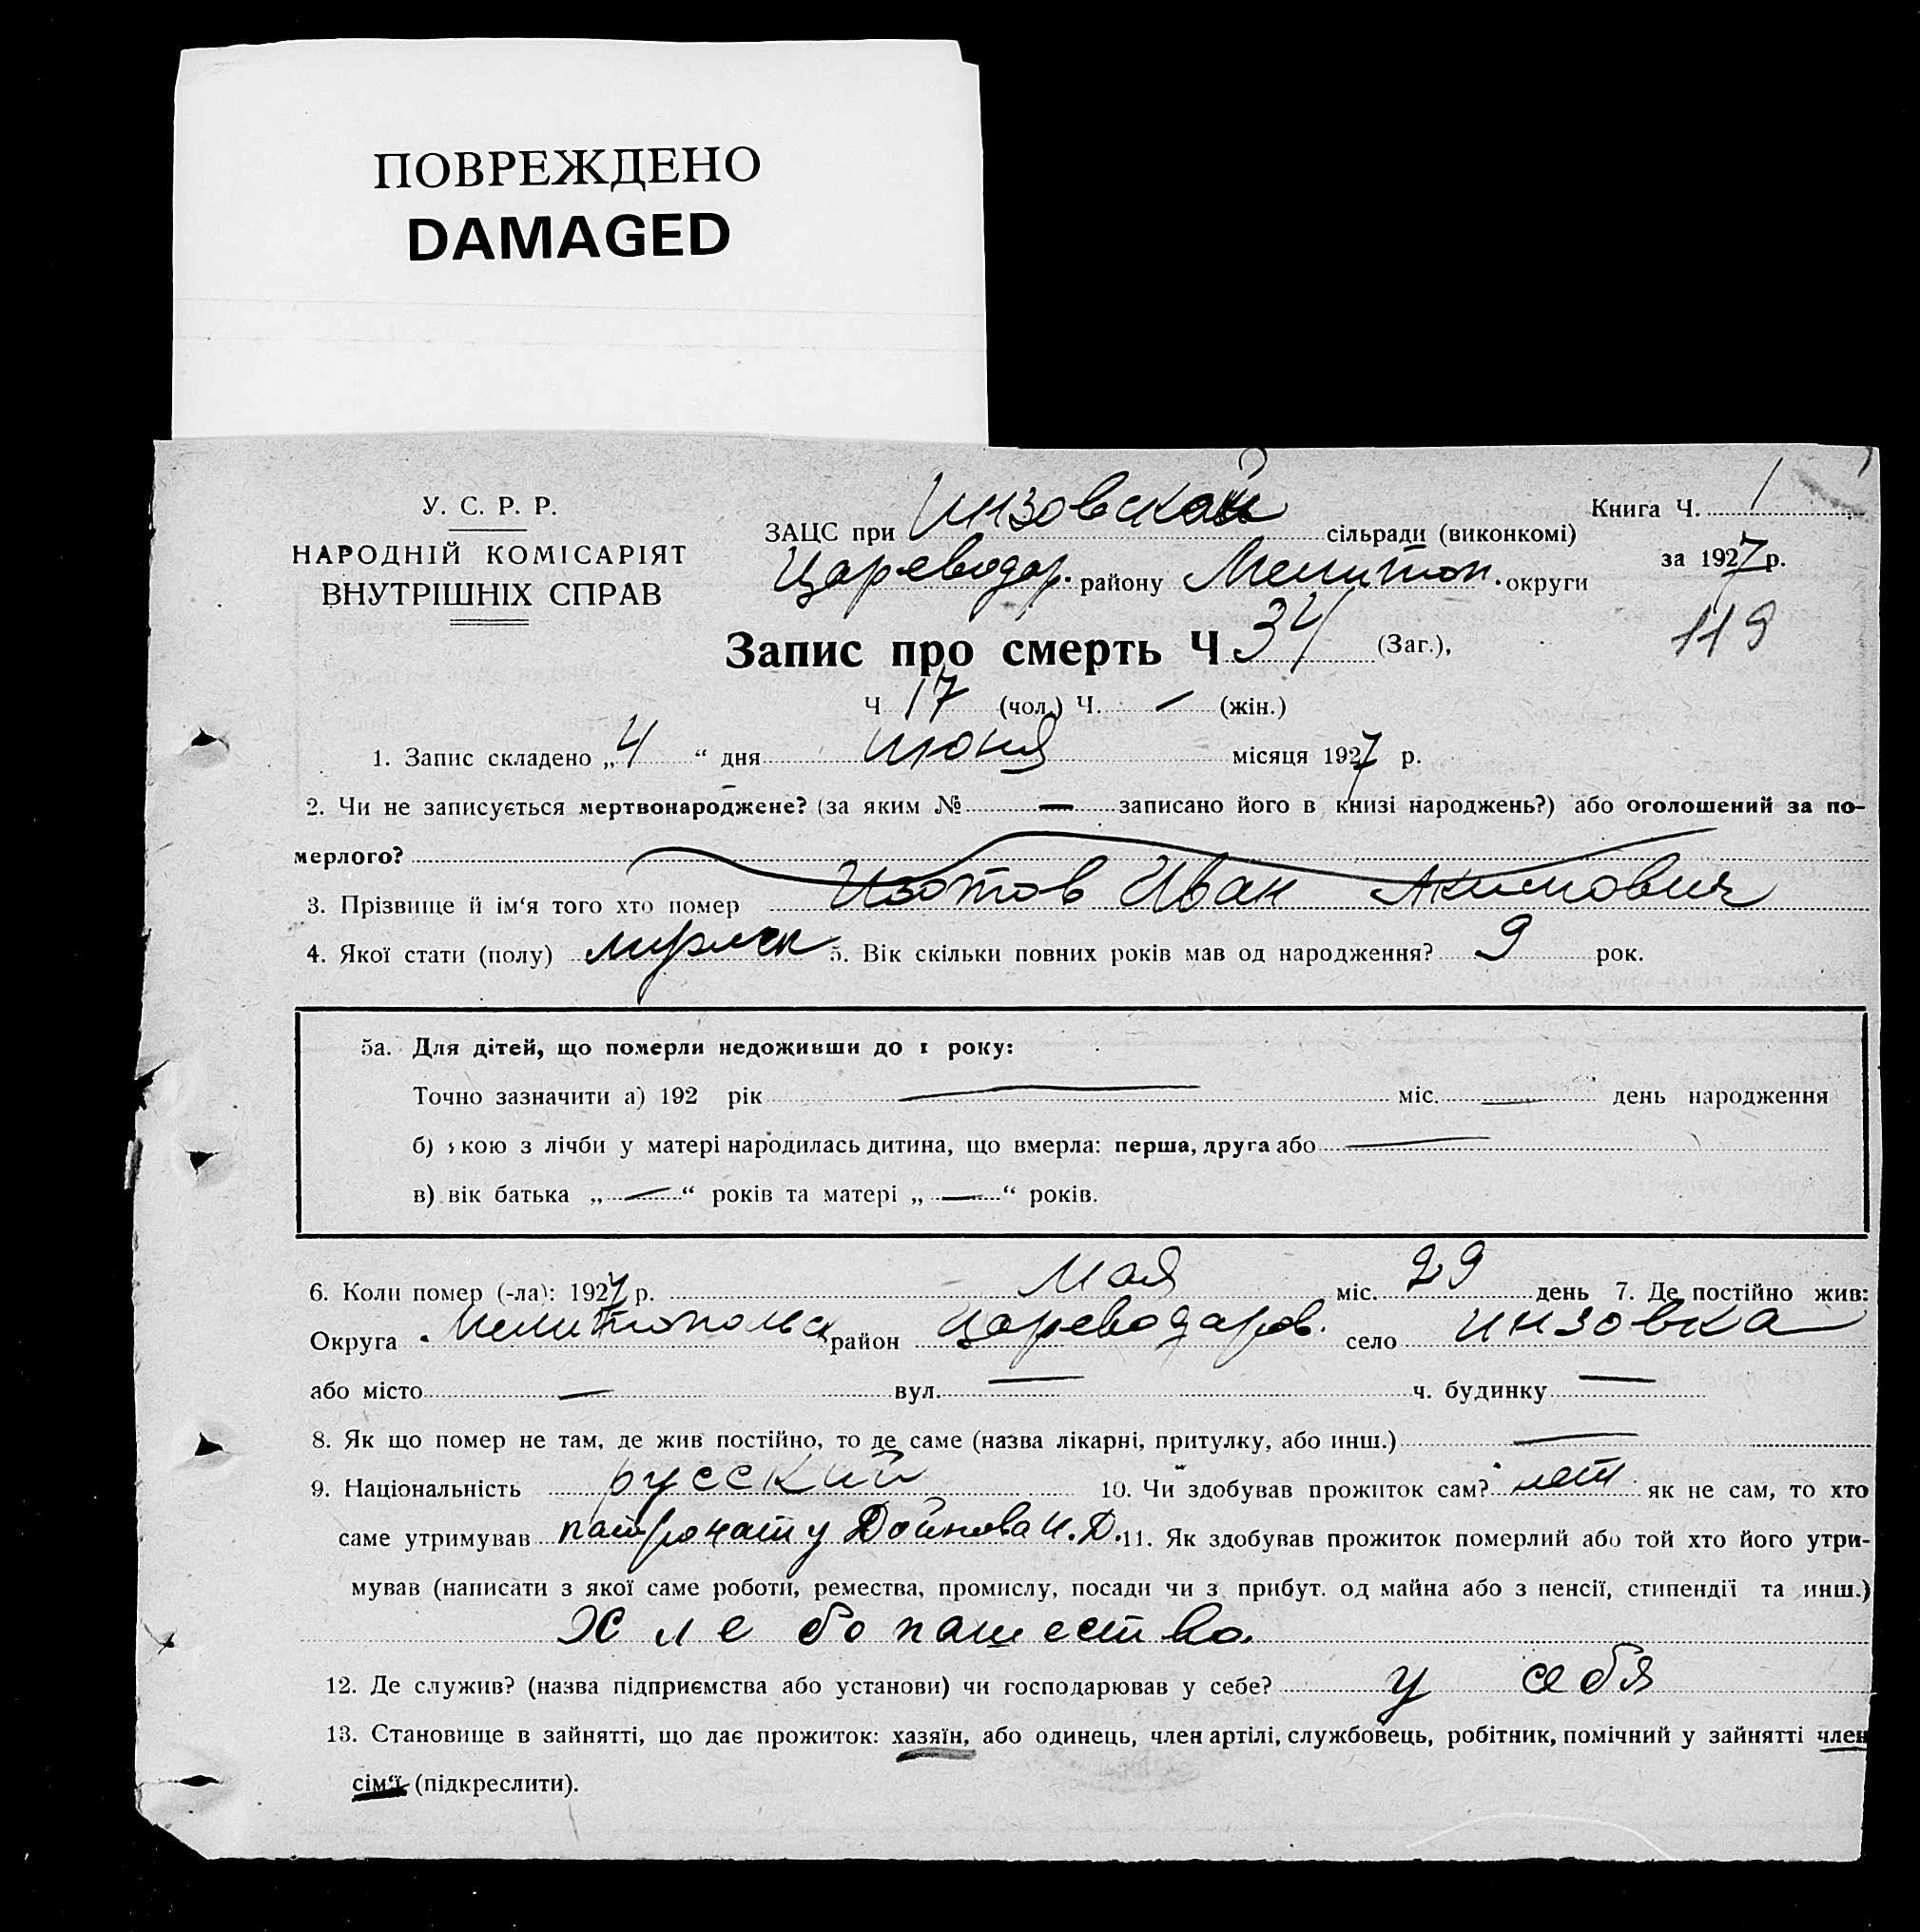 ПОВРЕЖДЕНО
DAMAGED
У. С. Р. Р.
НАРОДНІЙ КОМІСАРІЯТ
ВНУТРІШНІХ СПРАВ
ЗАЦС при Инзовской сільради (виконкомі)
Цареводар. району Мелитоп. округи
Книга Ч. 1
за 1927 р.
119
Запис про смерть Ч 34 (Заг.),
Ч 17 (чол.) Ч. — (жін.)
1. Запис складено „4“ дня июня місяця 1927 р.
2. Чи не записується мертвонароджене? (за яким № — записано його в книзі народжень?) або оголошений за по-
мерлого?
3. Прізвище й ім'я того хто помер Изотов Иван Акимович
4. Якої стати (полу) мужск 5. Вік скільки повних років мав од народження? 9 рок.
5а. Для дітей, що померли недоживши до 1 року:
Точно зазначити а) 192 рік — міс. — день народження
б) кою з лічби у матері народилась дитина, що вмерла: перша, друга або —
в) вік батька „—“ років та матері „—“ років.
6. Коли помер (-ла): 1927 р. мая міс. 29 день 7. Де постійно жив:
Округа Мелитопольск район Цареводаров. село Инзовка
або місто — вул. — ч. будинку —
8. Як що помер не там, де жив постійно, то де саме (назва лікарні, притулку, або инш.) —
9. Національність русский 10. Чи здобував прожиток сам? нет як не сам, то хто
саме утримував патронат у Дойнова И. Д. 11. Як здобував прожиток померлий або той хто його утри-
мував (написати з якої саме роботи, ремества, промислу, посади чи з прибут. од майна або з пенсії, стипендії та инш.)
Хлебопашество
12. Де служив? (назва підприємства або установи) чи господарював у себе? у себя
13. Становище в зайнятті, що дає прожиток: хазяїн, або одинець, член артілі, службовець, робітник, помічний у зайнятті член
сім'ї (підкреслити).